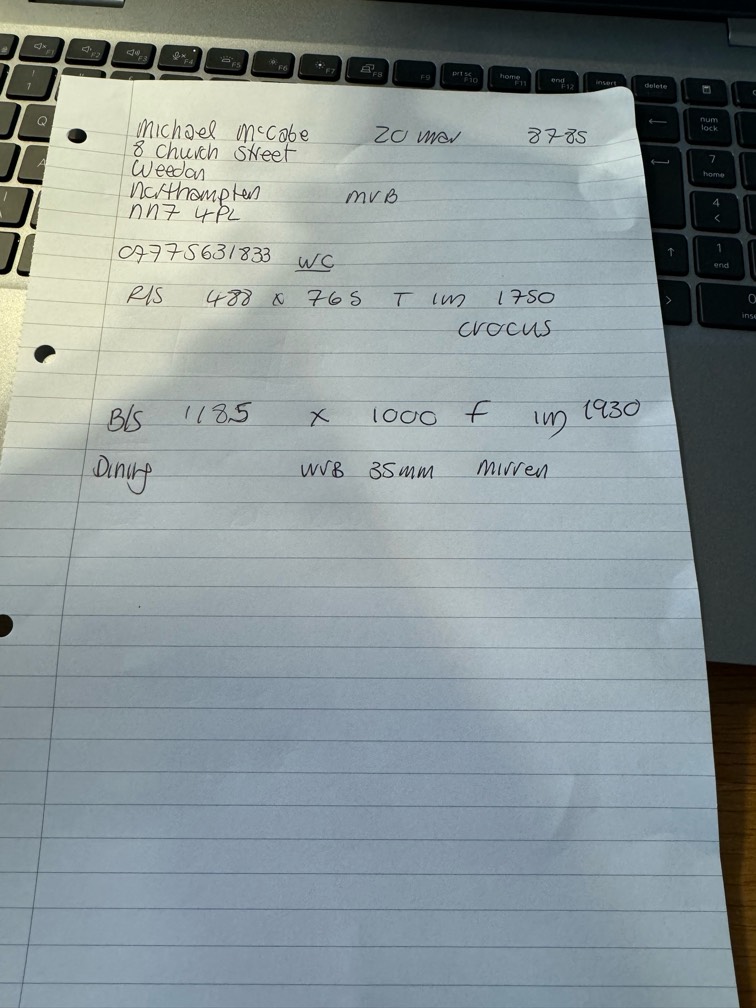 Michael McCabe 20 Mar 8785
8 Church Street
Weedon
Northampton MVB
NN7 4PL
07775631833 WC
R/S 488 x 765 T IM 1750
Crocus
B/S 1185 x 1000 F IM 1930
Dining WVB 35mm Mirren
F1
F2
F3
F4
F5
F6
F7
F8
F9
prt sc
F10
home
F11
end
F12
insert
delete
!
1
Q
A
num
lock
7
home
4
<
1
end
>
0
ins